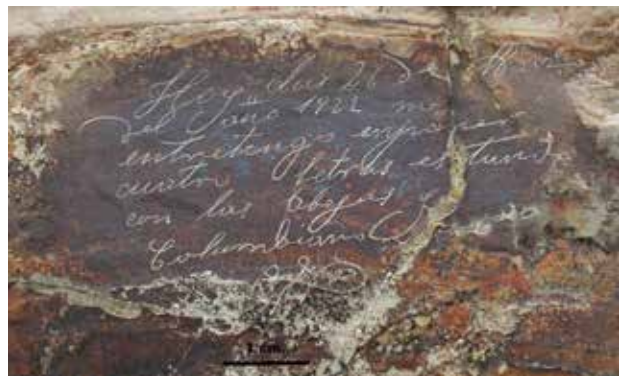 Hoy dia 26 de
del año 1922 me
entretengo en poner
cuatro letras estando
con las obejas
Columbiano
1 cm.